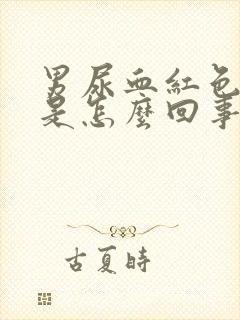 男尿血紅色
是怎麼回事
古夏時